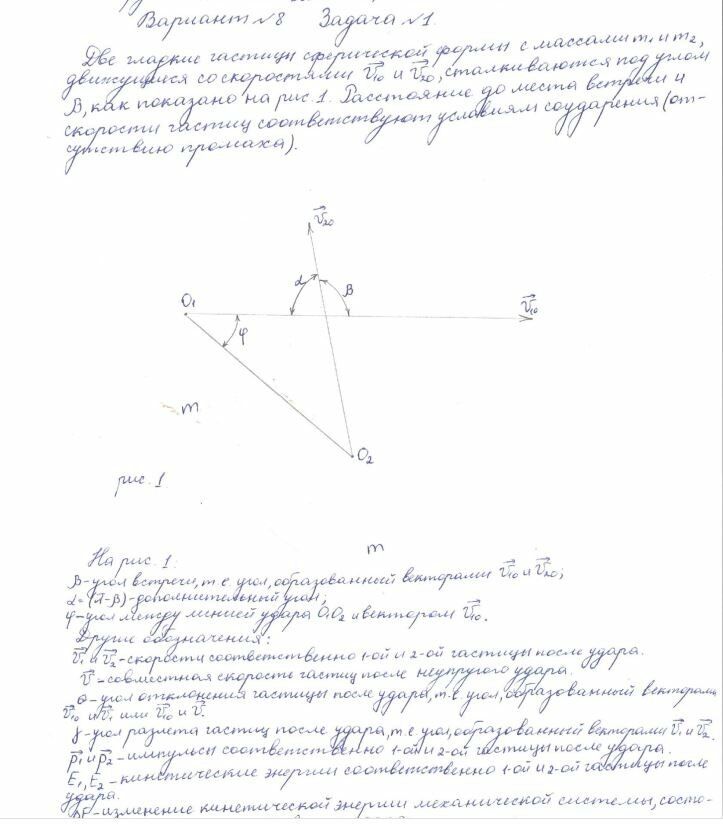 Вариант №8 Задача №1.
Две гладкие частицы сферической формы с массами m₁ и m₂,
движущиеся со скоростями v⃗₁₀ и v⃗₂₀, сталкиваются под углом
β, как показано на рис. 1. Расстояние до места встречи и
скорости частиц соответствуют условиям соударения (от-
сутствию промаха).
v⃗₂₀
α
β
O₁
v⃗₁₀
φ
m
O₂
рис. 1
m
На рис. 1:
β-угол встречи, т.е. угол, образованный векторами v⃗₁₀ и v⃗₂₀;
α=(π-β)-дополнительный угол;
φ-угол между линией удара O₁O₂ и вектором v⃗₁₀.
Другие обозначения:
v⃗₁ и v⃗₂-скорости соответственно 1-ой и 2-ой частицы после удара.
v⃗-совместная скорость частиц после неупругого удара.
θ-угол отклонения частицы после удара, т.е. угол, образованный векторами
v⃗₁₀ и v⃗₁ или v⃗₁₀ и v⃗.
γ-угол разлета частиц после удара, т.е. угол, образованный векторами v⃗₁ и v⃗₂.
p⃗₁ и p⃗₂-импульсы соответственно 1-ой и 2-ой частицы после удара.
E₁, E₂-кинетические энергии соответственно 1-ой и 2-ой частицы после
удара.
ΔE-изменение кинетической энергии механической системы, состо-